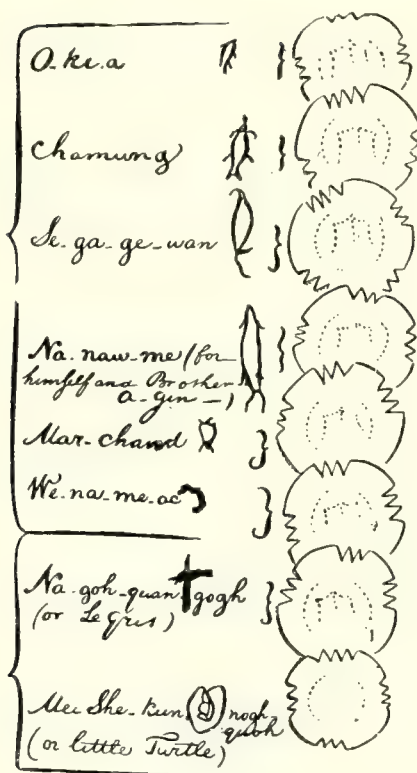 O-ki-a
Chamung
Se-ga-ge-wan
Na-naw-me (for
himself and Brother
A-gin—)
Mar-chand
We-na-me-ac
Na-goh-quan gogh
(or Le Gris)
Mee She-kun nogh
quoh
(or little Turtle)